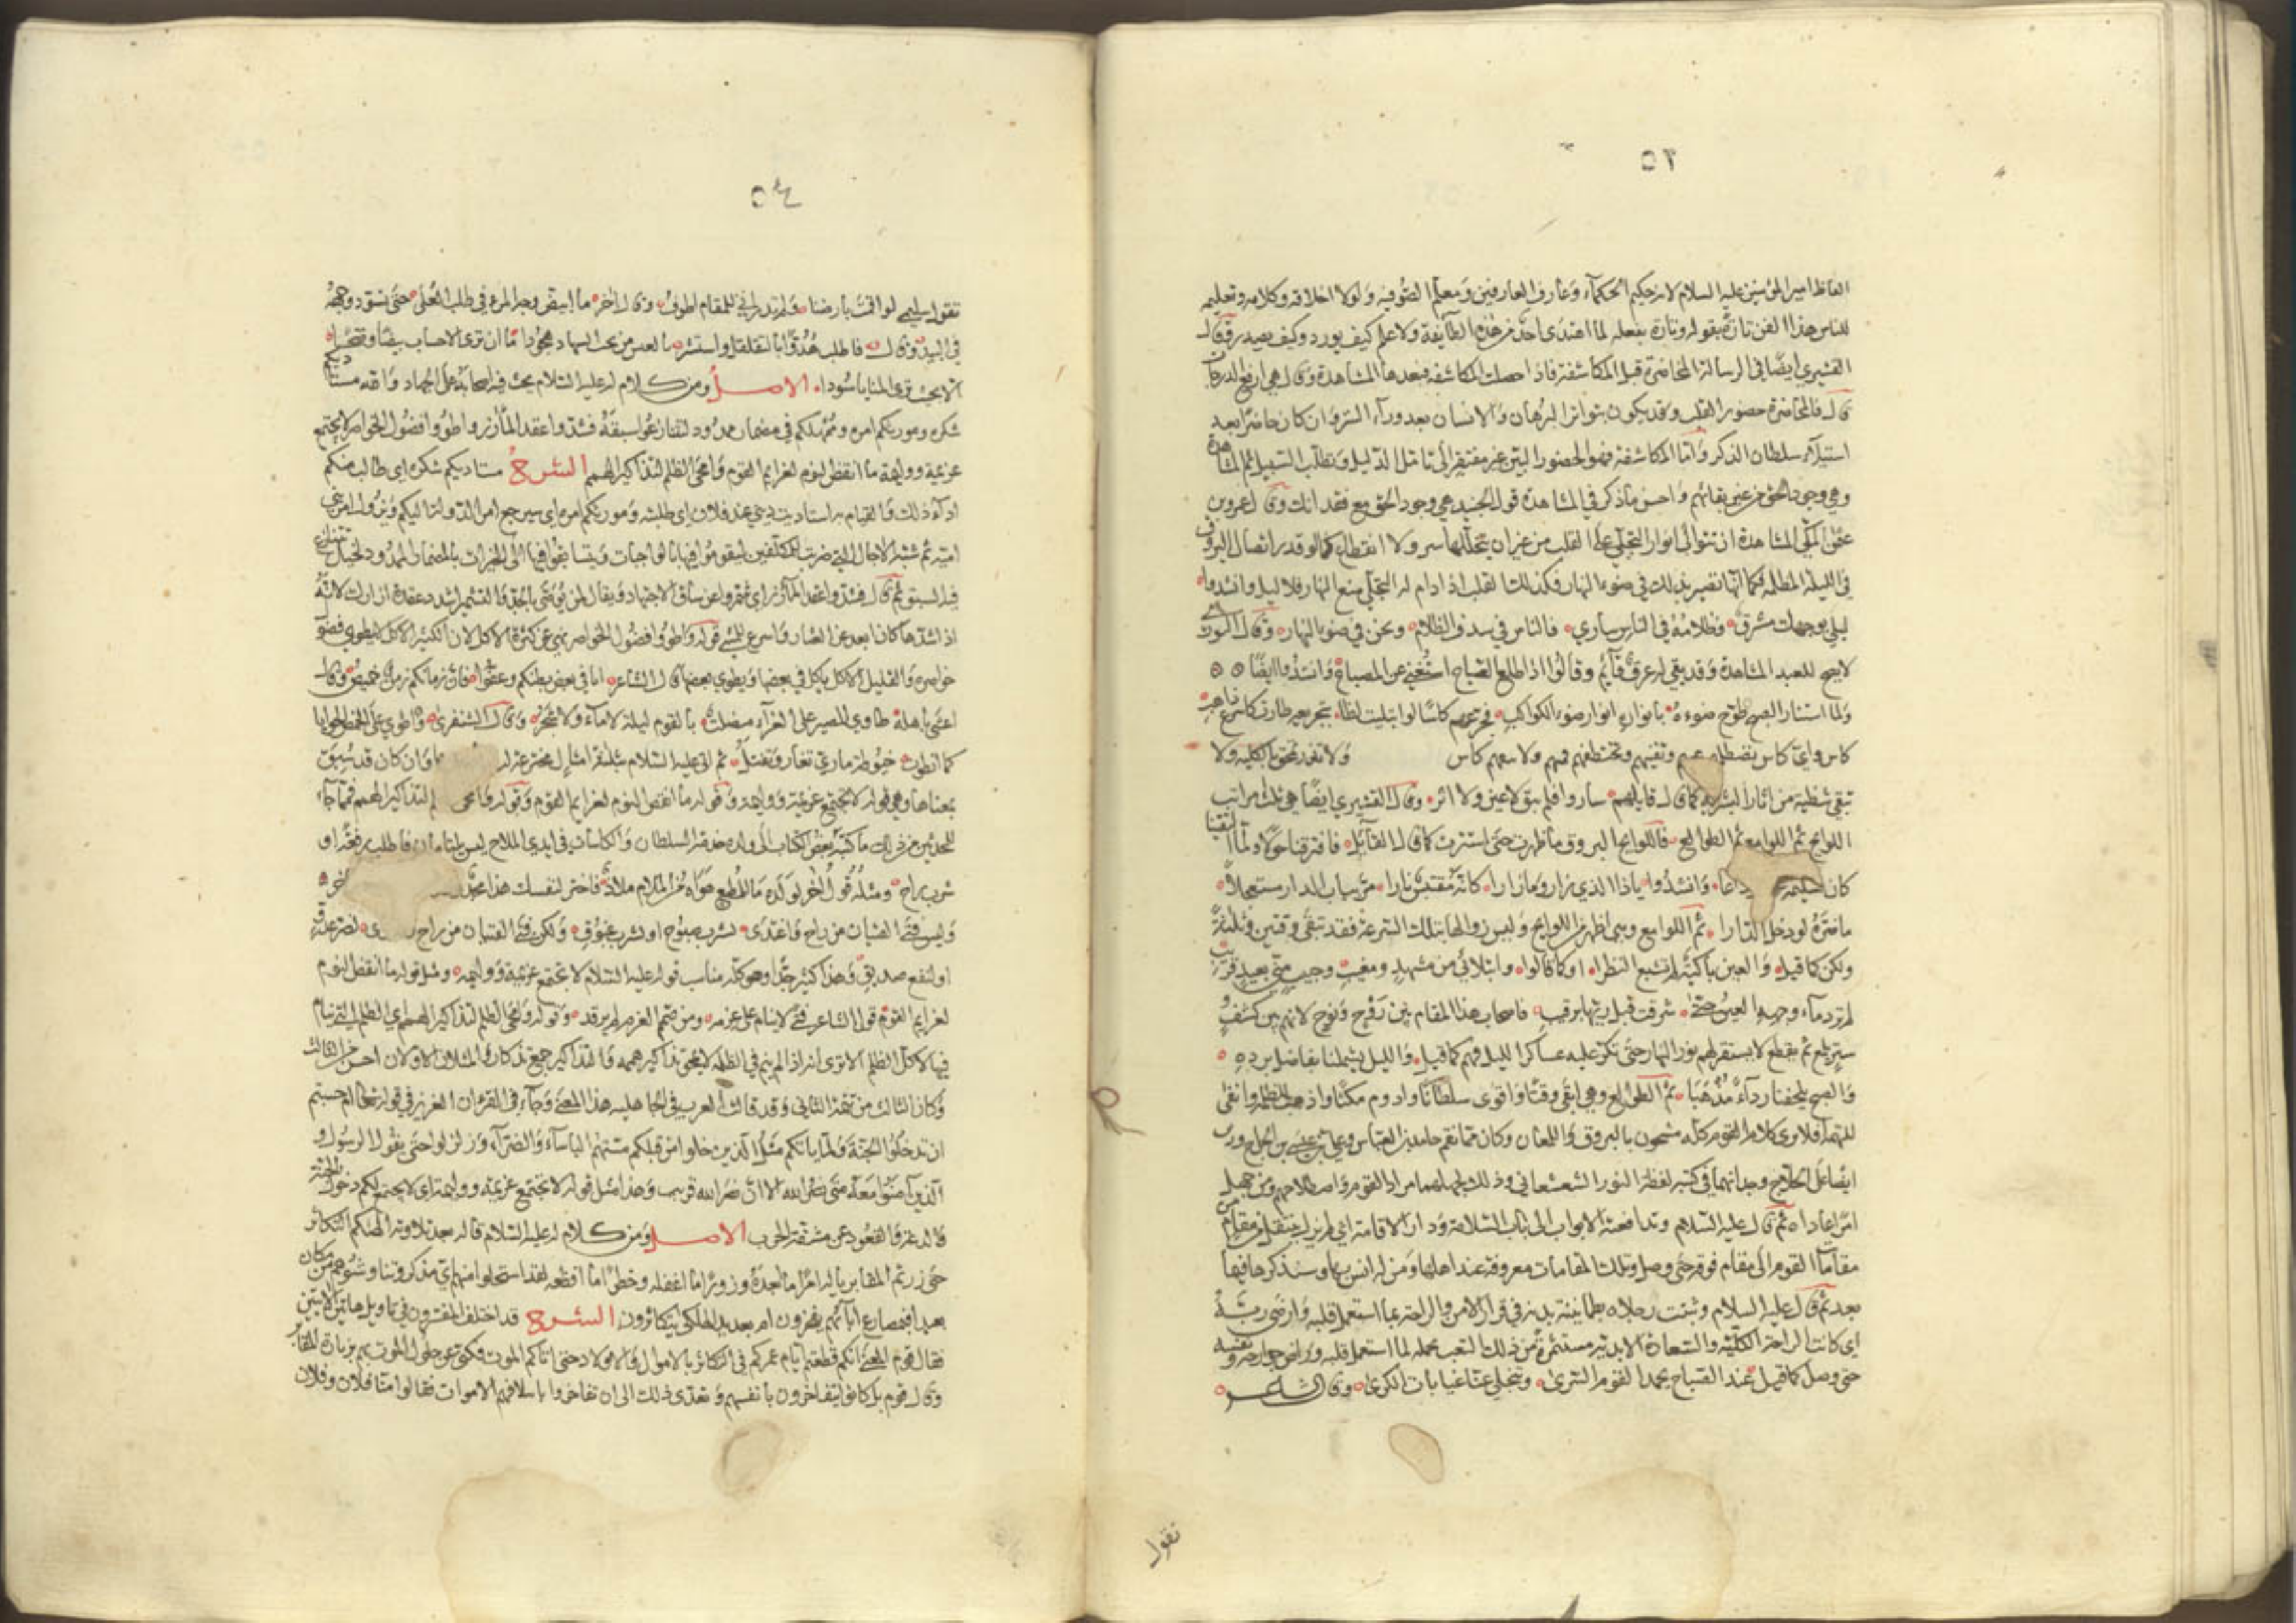 ٥٣
الفاظ امير المؤمنين عليه السلام لانه حكيم الحكماء وعارف العارفين ومعلم الصوفيه ولولا اخلاقه وكلامه وتعليمه
للناس هذا الفن تارة بقوله وتارة بفعله لما اهتدى احد من هذه الطائفة ولا علم كيف يورد وكيف يصدر وقال
القشيري ايضا في الرسالة المحاضرة قبل المكاشفة فاذا حصلت المكاشفه فبعدها المشاهدة وقال هي ارفع الدرجات
قال فالمحاضرة حضور القلب وقد يكون بتواتر البرهان والانسان بعد وراء الستر وان كان حاضرا بعد
استيلاء سلطان الذكر واما المكاشفة فهو الحضور البين غير مفتقر الى تامل الدليل وتطلب السبيل ثم المشاهدة
وهي وجود الحق من غير بقاء تهم واحسن ما ذكر في المشاهدة قول الجنيد هي وجود الحق مع فقدانك وقال عمرو بن
عثمان المكي المشاهدة ان تتوالى انوار التجلي على القلب من غير ان يتخللها ستر ولا انقطاع كما لو قدر اتصال البروق
في الليلة المظلمة فكما انها تصير بذلك في ضوء النهار فكذلك القلب اذا دام له التجلي منع النهار فلا ليل وانشدوا
ليلي بوجهك مشرق وظلامه في الناس ساري فالناس في سدف الظلام ونحن في ضوء النهار وقال النوري
لا يصح للعبد المشاهدة وقد بقي له عرق قائم وقالوا اذا طلع الصباح استغني عن المصباح وانشدوا ايضا
ولما استنار الصبح طوح ضوءه بانوار انوار ضوء الكواكب فجرعهم كاسا لو ابتليت لظا بتجريعه طارت كاسرع ذاهب
كاس واي كاس تصطلمهم عنهم وتفنيهم وتختطفهم منهم ولا تبقيهم كاس ولا تذر تمحق بالكليه ولا
تبقي شظية من اثار البشرية كما قال قايلهم ساروا فلم يبق لا عين ولا اثر وقال القشيري ايضا هي ثلث مراتب
اللوايح ثم اللوامع ثم الطوالع فاللوايح البروق ما ظهرت حتى استترت كما قال القائل فافترقنا حولا فلما التقينا
كان تسليمه وداعا وانشدوا يا ذا الذي زار وما زارا كانه مقتبس نارا مر بباب الدار مستعجلا
ما ضره لو دخل الدارا ثم اللوامع وهي اظهر من اللوايح وليس زوالها بتلك السرعة فقد تبقى وقتين وثلثة
ولكن كما قيل والعين باكية لم تشبع النظرا او كما قالوا وابتلائي من مشهد ومغيب وحبيب مني بعيد قريب
لم ترد ماء وجهه العين حتى شرقت قبل ريها برقيب فاصحاب هذا المقام بين روح ونوح لانهم بين كشف و
ستر يلمع ثم يقطع لا يستقر لهم نور النهار حتى تكر عليه عساكر الليل فهم كما قيل والليل يشملنا بفاضل برده
والصبح يلحفنا رداء مذهبا ثم الطوالع وهي ابقى وقتا واقوى سلطانا وادوم مكثا واذهب للظلمة وانفى
للتهمة افلا ترى كلام القوم كله مشحون بالبروق واللمعان وكان مما نقم حامد بن العباس وعلي بن عيسى بن الجراح وزير
ايضا على الحلاج وجدانهما في كتبه لفظة النور الشعشعاني وذلك لجهلهما مراد القوم واصطلاحهم ومن جهل
امرا عاداه ثم قال عليه السلام وتدافعته الابواب الى باب السلامة ودار الاقامة اي لم يزل ينتقل من مقام من
مقامات القوم الى مقام فوقه حتى وصل وتلك المقامات معروفة عند اهلها ومن له انس بها وسنذكرها فيما
بعد ثم قال عليه السلام وثبتت رجلاه بطمانينة بدنه في قرار الامن والراحة بما استعمل قلبه وارضى ربه
اي كانت الراحة الكلية والسعادة الابدية مستثمرة من ذلك التعب بحمله لما استعمل قلبه وراض جوارحه ونفسه
حتى وصل كما قيل عند الصباح يحمد القوم السرى وتنجلي عنا غيابات الكرى وقال الشاعر
تقول
٥٤
تقول سليمى لو اقمت بارضنا ولم تدر اني للمقام اطوف وقال اخر ما ابيض وجه المرء في طلب العلى حتى يسود وجهه
في البيد وقال فاطلب هدوا بالتقلقل واستثر بالعيس من تحت السهاد هجودا ما ان ترى الاحساب بيضا وضحا
الا بحيث ترى المنايا سودا الاصل ومن كلام له عليه السلام يحث فيه اصحابه على الجهاد والله مستاديكم
شكره ومورثكم امره وممهلكم في مضمار ممدود لتتنازعوا سبقه فشدوا عقد المآزر واطووا فضول الخواصر لا تجتمع
عزيمة ووليمة ما انقض النوم لعزايم القوم وامحى الظلم لتذاكير الهمم الشرح مستاديكم شكره اي طالب منكم
اداء ذلك والقيام به استاديت ديني عند فلان اي طلبته ومورثكم امره اي سيرجع امر الدولة اليكم ويزول امر بني
امية ثم شبه الاجال التي ضربت للمكلفين ليقوموا فيها بالواجبات ويتسابقوا فيها الى الخيرات بالمضمار الممدود لخيل تتنازع
فيه السبق ثم قال فشدوا عقد المآزر اي شمروا عن ساق الاجتهاد ويقال لمن يوصى بالجد والتشمير اشدد عقدة ازارك لانه
اذا شدها كان ابعد عن العثار واسرع للمشي قوله واطووا فضول الخواصر نهي عن كثرة الاكل لان الكثير الاكل لا يطوي فضول
خواصره والقليل الاكل ياكل في بعضها ويطوي بعضها قال الشاعر كلوا في بعض بطنكم وعفوا فان زمانكم زمن خميص وقال
اعشى باهلة طاوي المصير على العزاء منصلت بالقوم ليلة لا ماء ولا شجر وقال الشنفرى واطوي على الخمص الحوايا
كما انطوت خيوطة ماري تغار وتفتل ثم اتى عليه السلام بثلثة امثال مخترعة له وان كان قد سبق
بمعناها وهي قوله لا تجتمع عزيمة ووليمة وقوله ما انقض النوم لعزايم القوم وقوله وامحى لتذاكير الهمم فمما جاء
للمحدثين من ذلك ما كتبه بعض الكتاب الى ولده خدمة السلطان والكاسات في ايدي الملاح ليس يلتئمان فاطلب رفعة او
شرب راح ومثله قول اخر لولده ما للمطيع هواه من الملام ملاذ فاختر لنفسك هذا مجد اخر
وليس فتى الفتيان من راح واغتدى لشرب صبوح او لشرب غبوق ولكن فتى الفتيان من راح لضر عدو
او لنفع صديق وهذا كثير جدا وهو كله مناسب قوله عليه السلام لا تجتمع عزيمة ووليمة ومثل قوله ما انقض النوم
لعزايم القوم قول الشاعر فتى لا ينام على عزمه ومن صمم العزم لم يرقد وقوله وامحى الظلم لتذاكير الهمم اي الظلم التي ينام
فيها لا كل الظلم الا ترى انه اذا لم ينم في الظلمة لا تمحى تذاكير هممه والتذاكير جمع تذكار والمثلان الاولان احسن من الثالث
وكان الثالث من تتمة الثاني وقد قالت العرب في الجاهلية هذا المعنى وجاء في القرآن العزيز في قوله تعالى ام حسبتم
ان تدخلوا الجنة ولما ياتكم مثل الذين خلوا من قبلكم مستهم الباساء والضراء وزلزلوا حتى يقول الرسول و
الذين آمنوا معه متى نصر الله الا ان نصر الله قريب وهذا مثل قوله لا تجتمع عزيمة ووليمة اي لا يجتمع لكم دخول الجنة
والدعة والقعود عن مشقة الحرب الاصل ومن كلام له عليه السلام قاله بعد تلاوته الهيكم التكاثر
حتى زرتم المقابر يا له امرا ما ابعده وزورا ما اغفله وخطرا ما افظعه لقد استحلوا منهم اي مذكر وتناوشوهم من مكان
بعيد افبمصارع آبائهم يفخرون ام بعديد الهلكى يتكاثرون الشرح قد اختلف المفسرون في تاويل هاتين الايتين
فقال قوم المعنى انكم قطعتم ايام عمركم في التكاثر بالاموال والاولاد حتى اتاكم الموت فكنى عن حلول الموت بهم بزيارة المقابر
وقال قوم بل كانوا يتفاخرون بانفسهم وتعدى ذلك الى ان تفاخروا باسلافهم الاموات فقالوا منا فلان وفلان